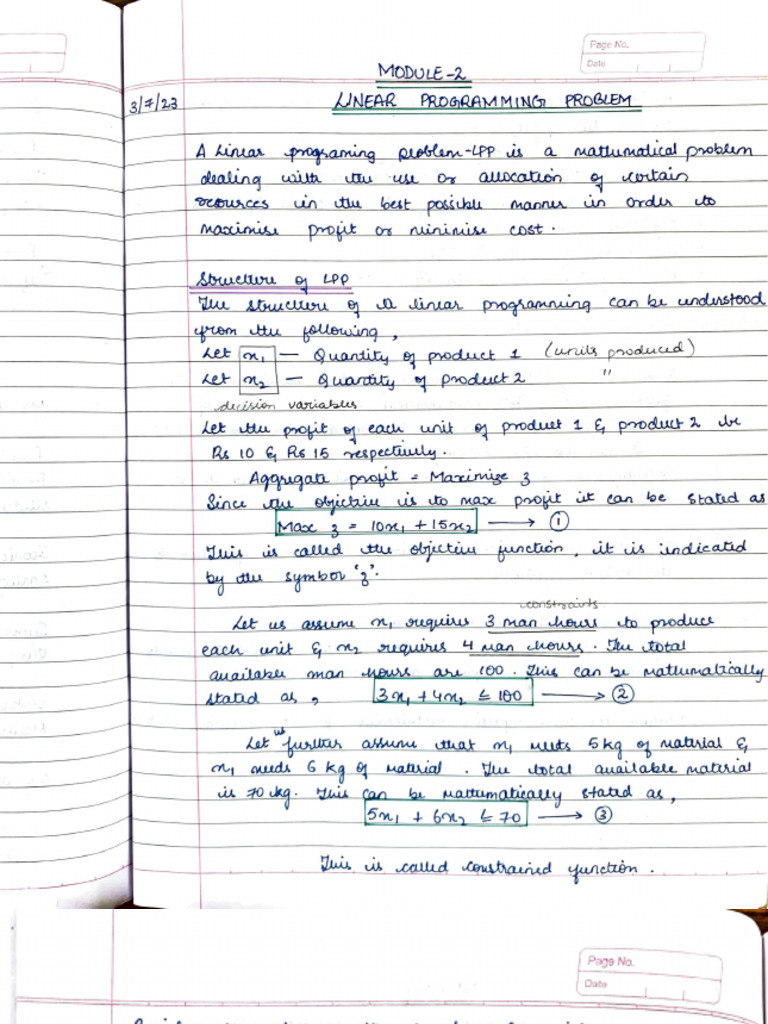 Page No.
Date
MODULE-2
3/7/23
LINEAR PROGRAMMING PROBLEM
A Linear programing problem-LPP is a mathematical problem
dealing with the use or allocation of certain
resources in the best possible manner in order to
maximise profit or minimise cost.
Structure of LPP
The structure of a linear programming can be understood
from the following,
Let x₁ — Quantity of product 1 (units produced)
Let x₂ — Quantity of product 2 "
decision variables
Let the profit of each unit of product 1 & product 2 be
Rs 10 & Rs 15 respectively.
Aggregate profit = Maximize z
Since the objective is to max profit it can be stated as
Max z = 10x₁ + 15x₂ → ①
This is called the objective function, it is indicated
by the symbol 'z'.
constraints
Let us assume x₁ requires 3 man hours to produce
each unit & x₂ requires 4 man hours. The total
available man hours are 100. This can be mathematically
stated as, 3x₁ + 4x₂ ≤ 100 → ②
Let us further assume that x₁ needs 5 kg of material &
x₁ needs 6 kg of material. The total available material
is 70 kg. This can be mathematically stated as,
5x₁ + 6x₂ ≤ 70 → ③
This is called constrained function.
Page No.
Date